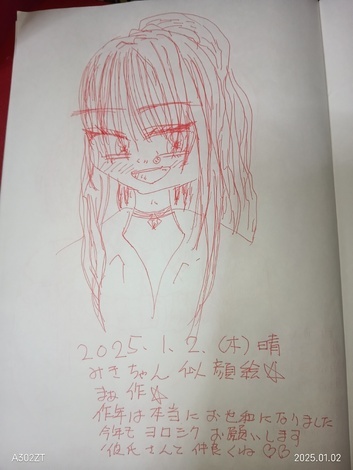 2025.1.2.(木)晴
みきちゃん 似顔絵☆
まぉ 作☆
作年は本当にお世和になりました
今年もヨロシクお願いします
彼氏さんて仲良くね♡♡
A302ZT
2025.01.02